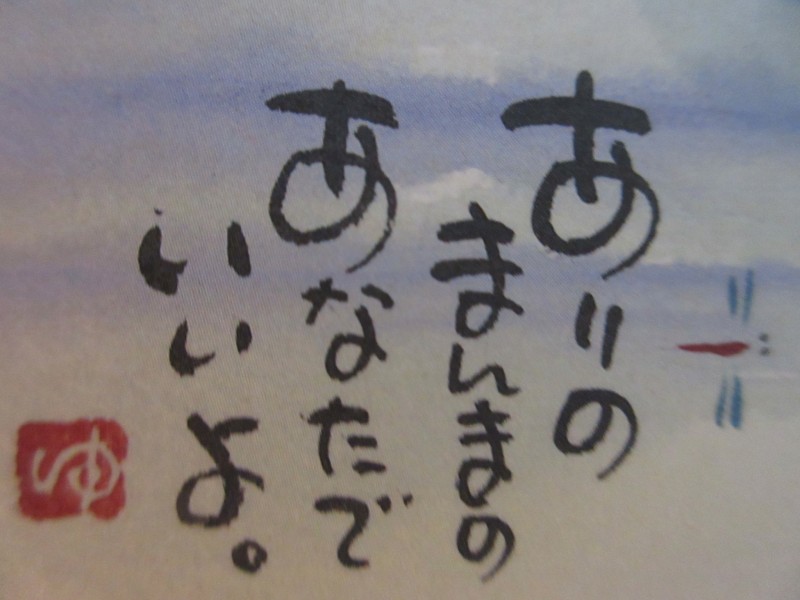 ありの
まんまの
あなたで
いいよ。
ゆ